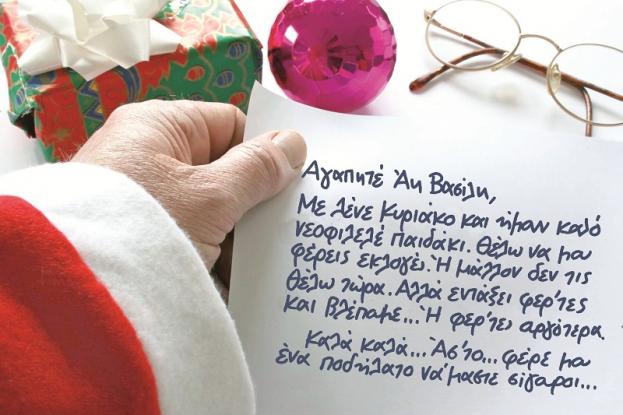 Αγαπητέ Άη Βασίλη,
Με λένε Κυριάκο και ήμουν καλό
νεοφιλελέ παιδάκι. Θέλω να μου
φέρεις εκλογές. Ή μάλλον δεν τις
θέλω τώρα. Αλλά εντάξει φερ'τες
και βλέπαμε... Ή φερ'τες αργότερα.
Καλά καλά... Άσ'το... φέρε μου
ένα ποδήλατο νά'μαστε σίγουροι...